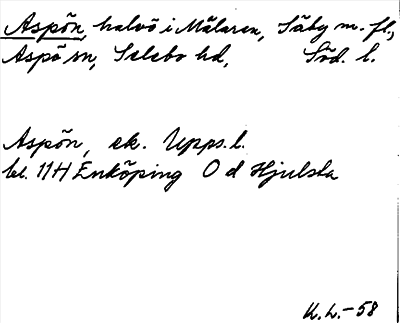 Aspön, halvö i Mälaren, Säby m. fl.,
Aspö sn, Selebo hd, Söd. l.
Aspön, ek. Upps. l.
bl. 11H Enköping O d Hjulsta
K. L. - 58